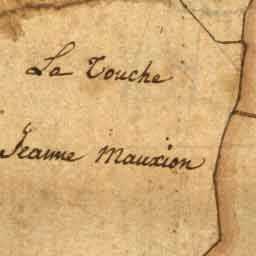 La Touche
Jeanne Mauxion